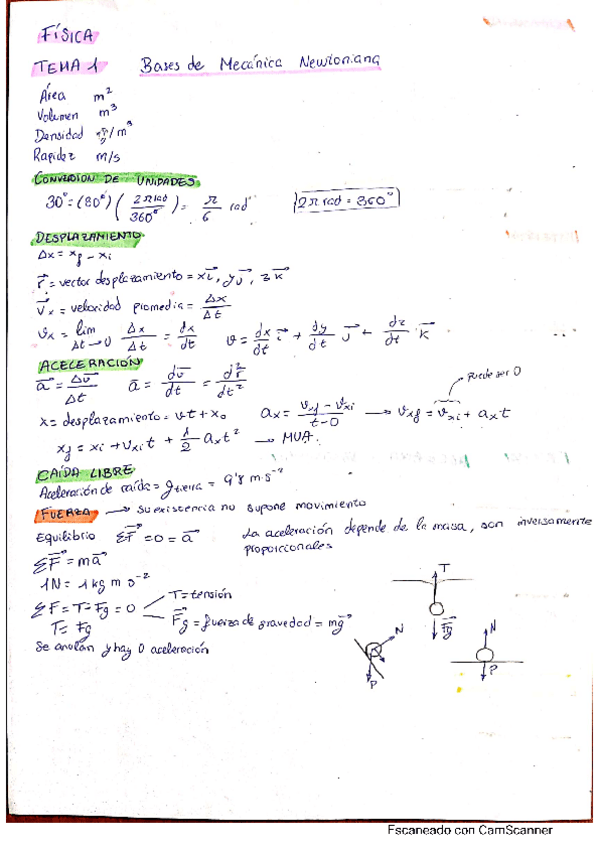 FÍSICA
TEMA 1 Bases de Mecánica Newtoniana
Área m²
Volumen m³
Densidad /m³
Rapidez m/s
CONVERSION DE UNIDADES
30° = (30°) (2π rad / 360°) = π/6 rad 2π rad = 360°
DESPLAZAMIENTO
Δx = xf - xi
r⃗ = vector desplazamiento = x i⃗, y j⃗, z k⃗
v⃗x = velocidad promedia = Δx⃗/Δt
vx = lim Δt→0 Δx/Δt = dx/dt v = dx/dt i⃗ + dy/dt j⃗ + dz/dt k⃗
ACELERACIÓN
a⃗ = Δv⃗/Δt a⃗ = dv⃗/dt = dr⃗/dt² puede ser 0
x = desplazamiento = vt + x₀ ax = (vxf - vxi)/(t-0) → vxf = vxi + ax t
xf = xi + vxi t + 1/2 ax t² → MUA.
CAÍDA LIBRE
Aceleración de caída = g tierra = 9'8 m·s⁻²
FUERZA → su existencia no supone movimiento
Equilibrio ΣF⃗ = 0 = a⃗ La aceleración depende de la masa, son inversamente
proporcionales
ΣF⃗ = ma⃗
1N = 1 kg m s⁻²
ΣF = T - Fg = 0 T = tensión
T = Fg F⃗g = fuerza de gravedad = mg⃗
Se anulan y hay 0 aceleración
T
F⃗g
N
P
N
P
Escaneado con CamScanner